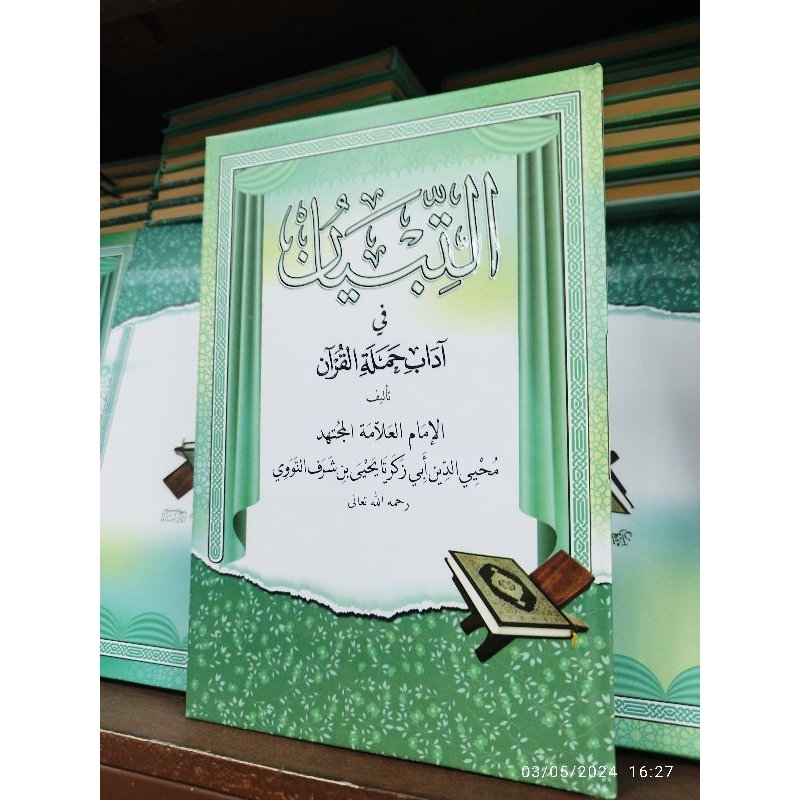 التِّبْيَانُ
في
آدَابِ حَمَلَةِ القُرْآن
تأليف
الإمَام العَلاّمَة المُجْتهد
مُحْيِي الدِّين أَبي زكَرِيَّا يَحْيَى بن شَرَف النَّوَوِي
رحمه الله تعالى
03/05/2024 16:27